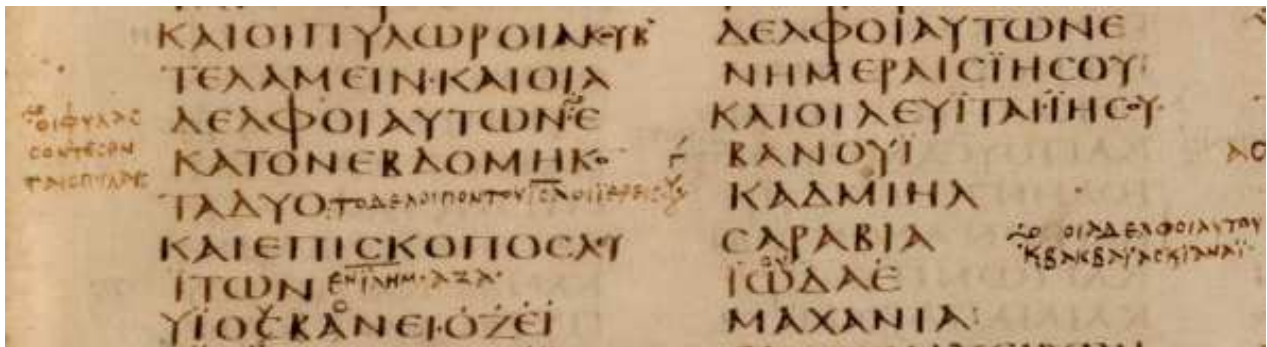 ΚΑΙΟΙΠΥΛΩΡΟΙΑΚΟΥΚ
ΤΕΛΑΜΕΙΝ·ΚΑΙΟΙΑ
ΔΕΛΦΟΙΑΥΤΩΝΕ
ΚΑΤΟΝΕΒΔΟΜΗΚΟ
ΤΑΔΥΟ·ΤΟΔΕΛΟΙΠΟΝΤΟΥΙϹΛΟΙΙΕΡΕΙϹ
ΚΑΙΕΠΙϹΚΟΠΟϹΛΥ
ΪΤΩΝ ΕΝΪΛΗΜ·ΑΖΑ·
ΥΙΟϹΒΑΝΕΙ·ΟΖΕΙ
ΟΙΦΥΛΑϹ
ϹΟΝΤΕϹΕΝ
ΤΑΙϹΠΥΛΑΙϹ
ΔΕΛΦΟΙΑΥΤΩΝΕ
ΝΗΜΕΡΑΙϹΪΗϹΟΥ
ΚΑΙΟΙΛΕΥΪΤΑΙ·ΪΗϹΟΥ·
ΒΑΝΟΥΪ
ΚΑΔΜΙΗΛ
ϹΑΡΑΒΙΑ
ΪΩΔΑΕ
ΜΑΧΑΝΙΑ
ΟΙΑΔΕΛΦΟΙΑΥΤΟΥ